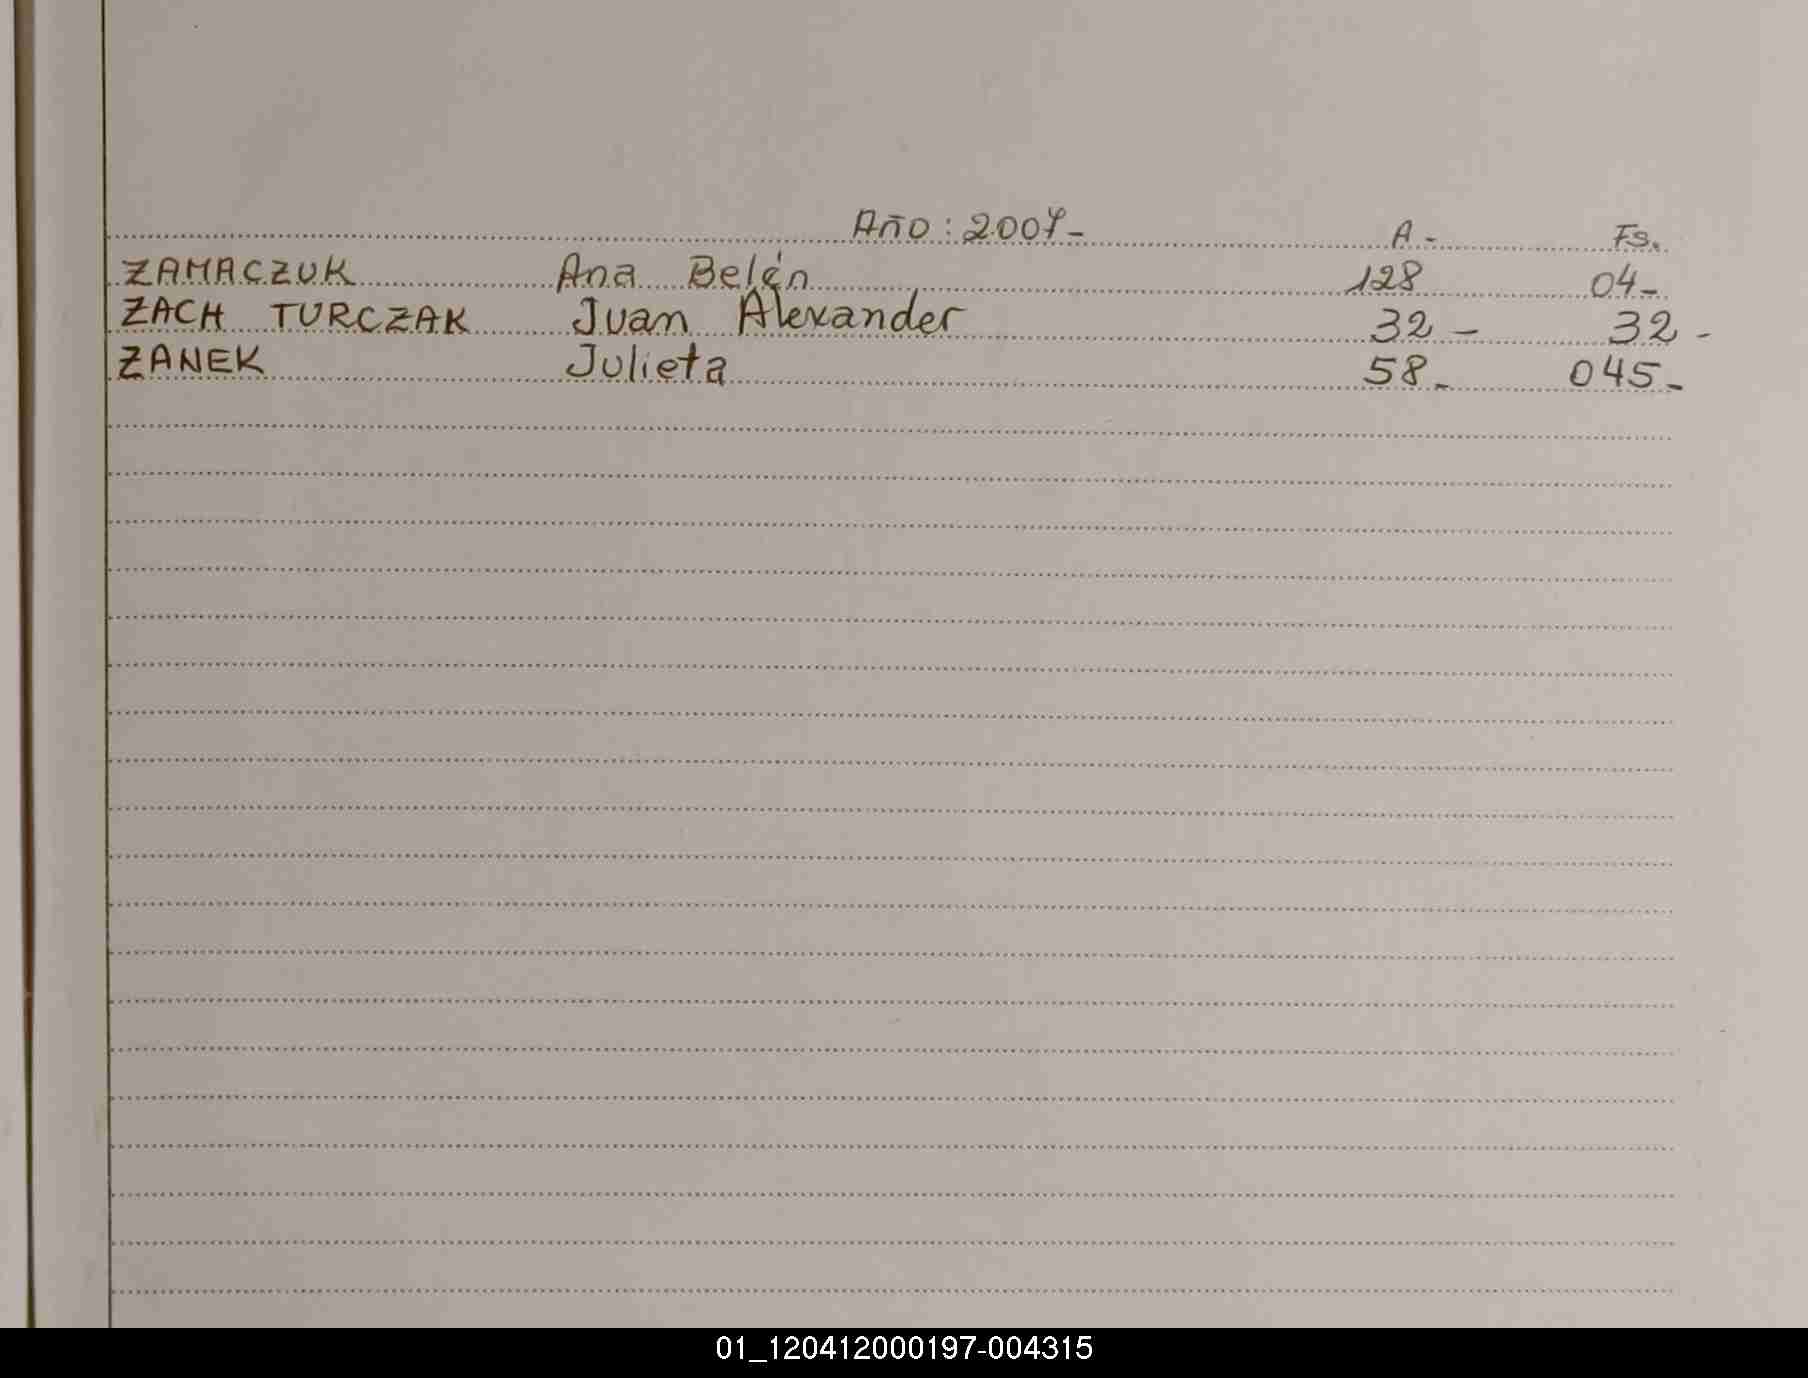 Año : 2007- A - Fs.
ZAMACZUK Ana Belén 128 04-
ZACH TURCZAK Juan Alexander 32 - 32 -
ZANEK Julieta 58 - 045 -
01_120412000197-004315